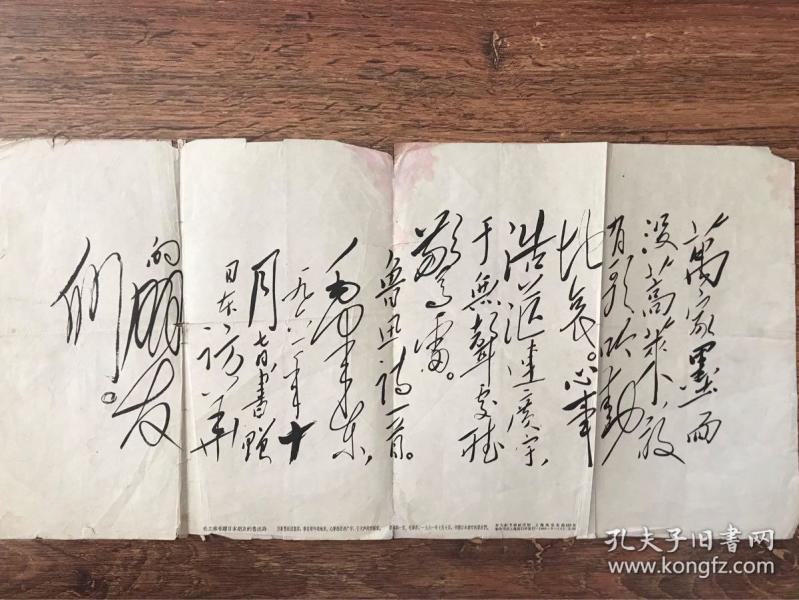 萬家墨面
没蒿莱,敢
有歌吟動
地哀。心事
浩茫連廣宇,
于無聲處聴
驚雷。
魯迅詩一首。
毛澤东
一九六一年十
月七日,書贈
日本訪華
的朋友
們。
毛主席书赠日本朋友的鲁迅诗
孔夫子旧书网
www.kongfz.com